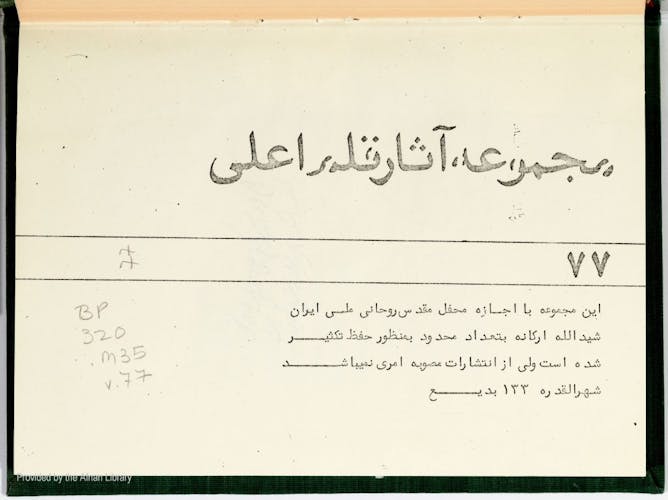 مجموعه آثار قلم اعلی
۷۷
این مجموعه با اجازه محفل مقدس روحانی ملی ایران
شیدالله ارکانه بتعداد محدود بمنظور حفظ تکثیر
شده است ولی از انتشارات مصوبه امری نمیباشد
شهرالقدره ۱۳۳ بدیع
BP
320
.M35
v.77
Provided by the Afnan Library